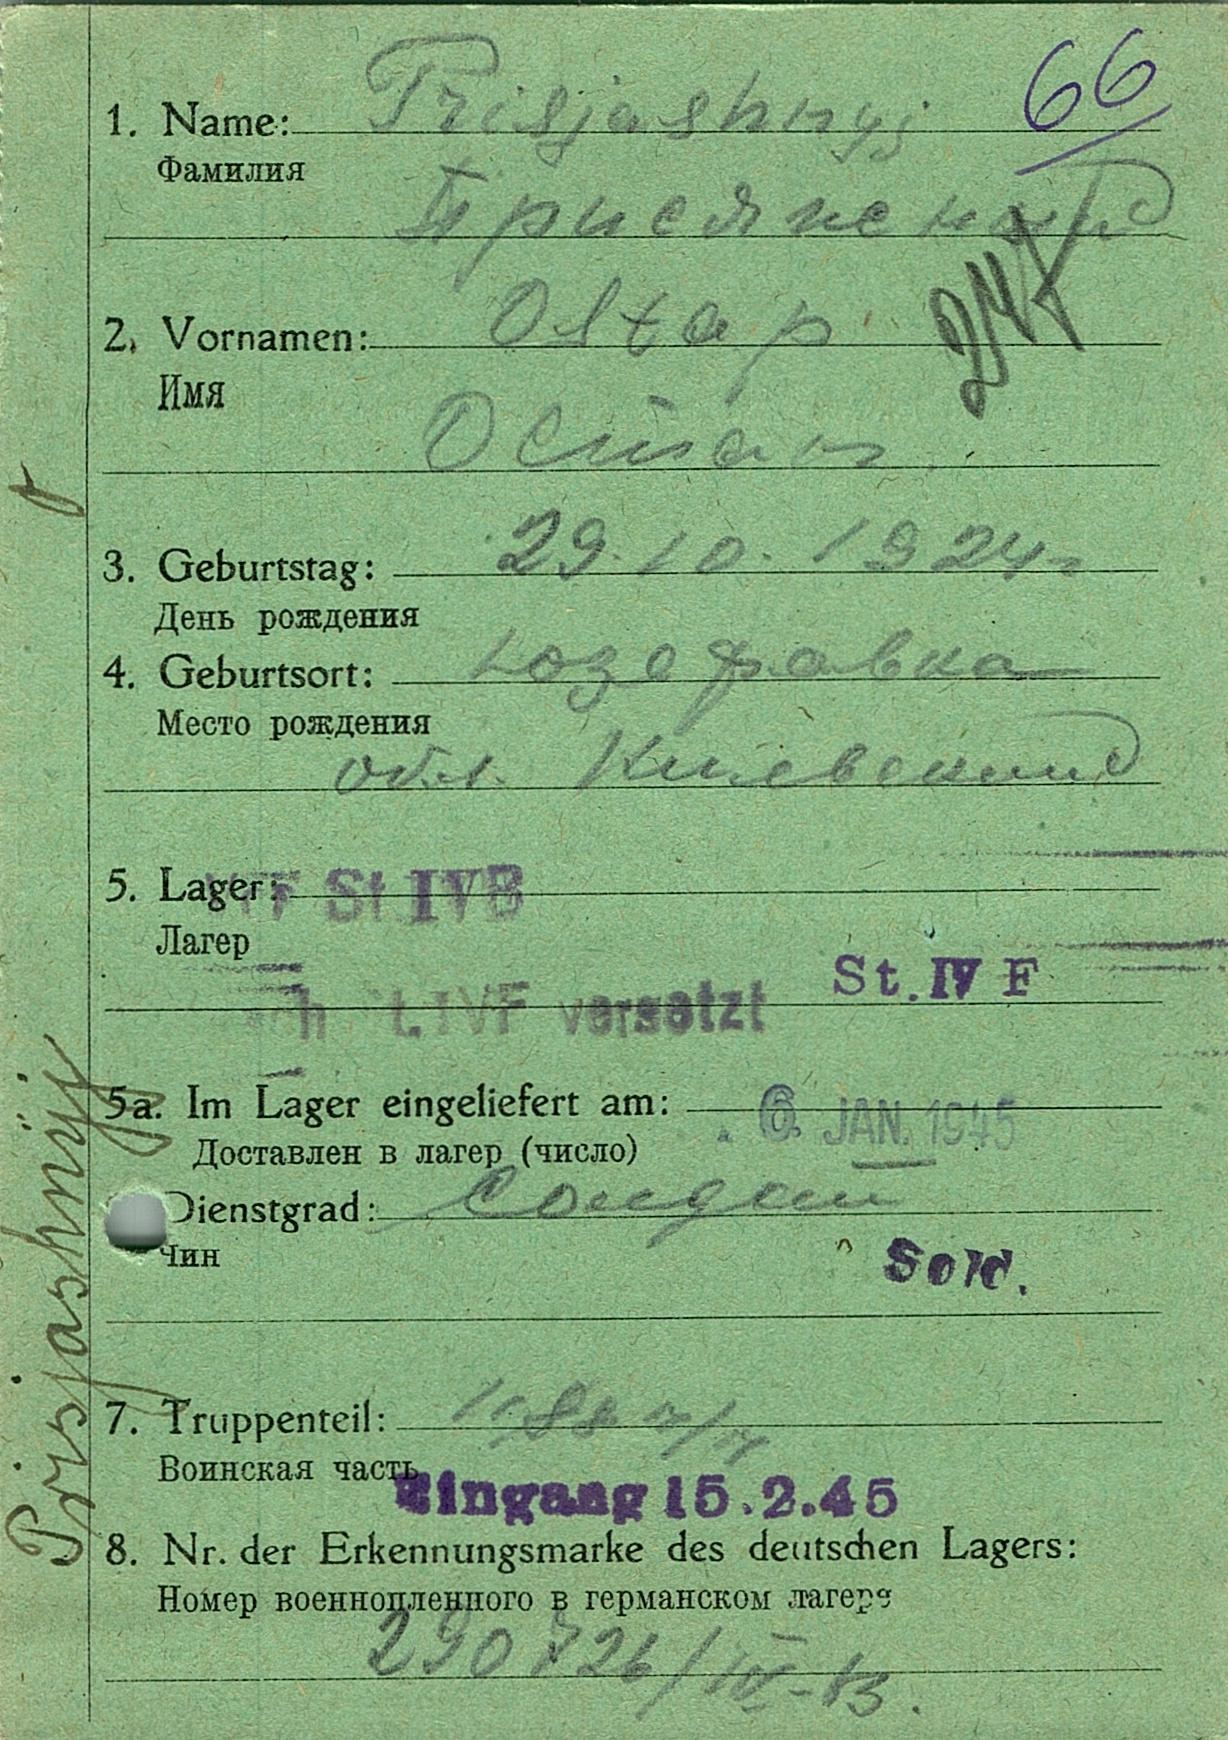 66
1. Name: Prisjashnyj
Фамилия
Присяжный
247
2. Vornamen: Ostap
Имя
Остап
3. Geburtstag: 29.10.1924
День рождения
4. Geburtsort: Юзефовка
Место рождения
обл. Киевский
5. Lager: St IVB
Лагер
St. IV F
t. IVF versetzt
5a. Im Lager eingeliefert am: 6. JAN. 1945
Доставлен в лагер (число)
Dienstgrad: Солдат
Чин
Sold.
7. Truppenteil:
Воинская часть
Eingang 15.2.45
8. Nr. der Erkennungsmarke des deutschen Lagers:
Номер военнопленного в германском лагере
290726/IV-B.
Prisjashnyj